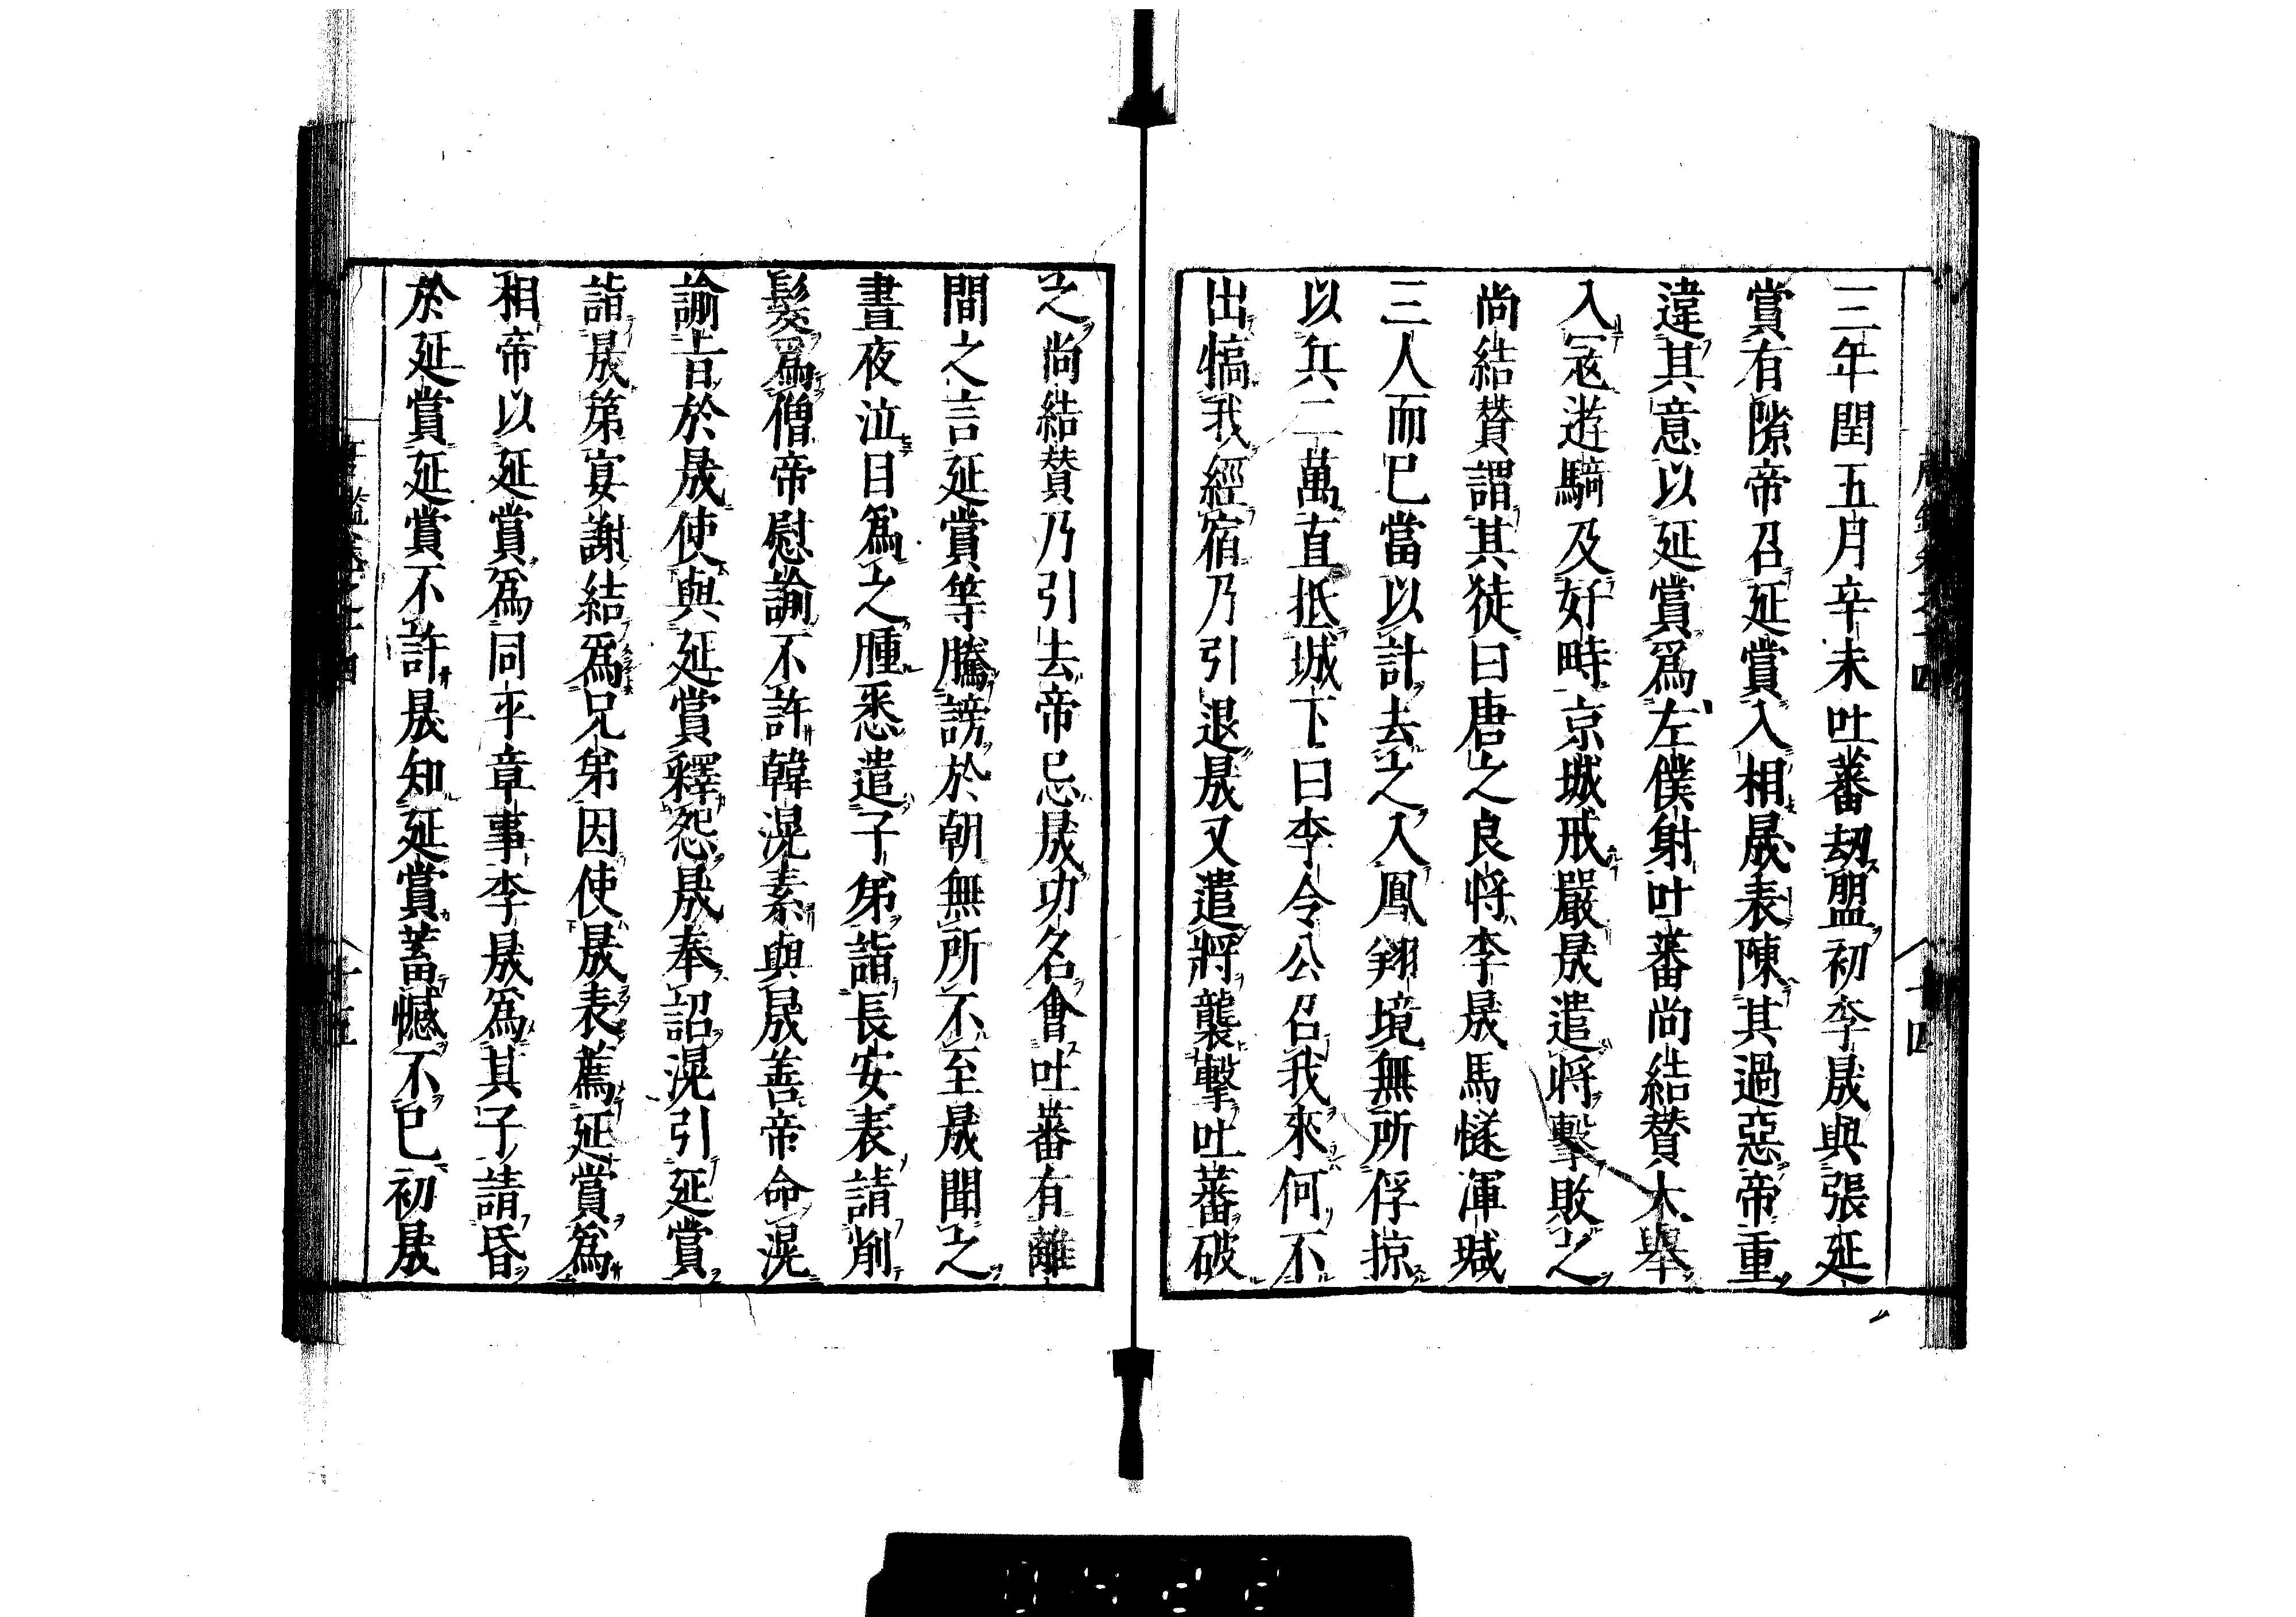 三年閏五月辛未吐蕃劫盟初李晟與張延
賞有隙帝召延賞入相晟表陳其過惡帝重
違其意以延賞爲左僕射吐蕃尚結賛大舉
入寇遊騎及好畤京城戒嚴晟遣將擊敗之
尚結賛謂其徒曰唐之良將李晟馬燧渾瑊
三人而已當以計去之入鳳翔境無所俘掠
以兵二萬直抵城下曰李令公召我來何不
出犒我經宿乃引退晟又遣將襲擊吐蕃破
之尚結賛乃引去帝忌晟功名會吐蕃有離
間之言延賞等騰謗於朝無所不至晟聞之
晝夜泣目爲之腫悉遣子弟詣長安表請削
髮爲僧帝慰諭不許韓滉素與晟善帝命滉
諭旨於晟使與延賞釋怨晟奉詔滉引延賞
詣晟第宴謝結爲兄弟因使晟表薦延賞爲
相帝以延賞爲同平章事李晟爲其子請昏
於延賞延賞不許晟知延賞蓄憾不已初晟